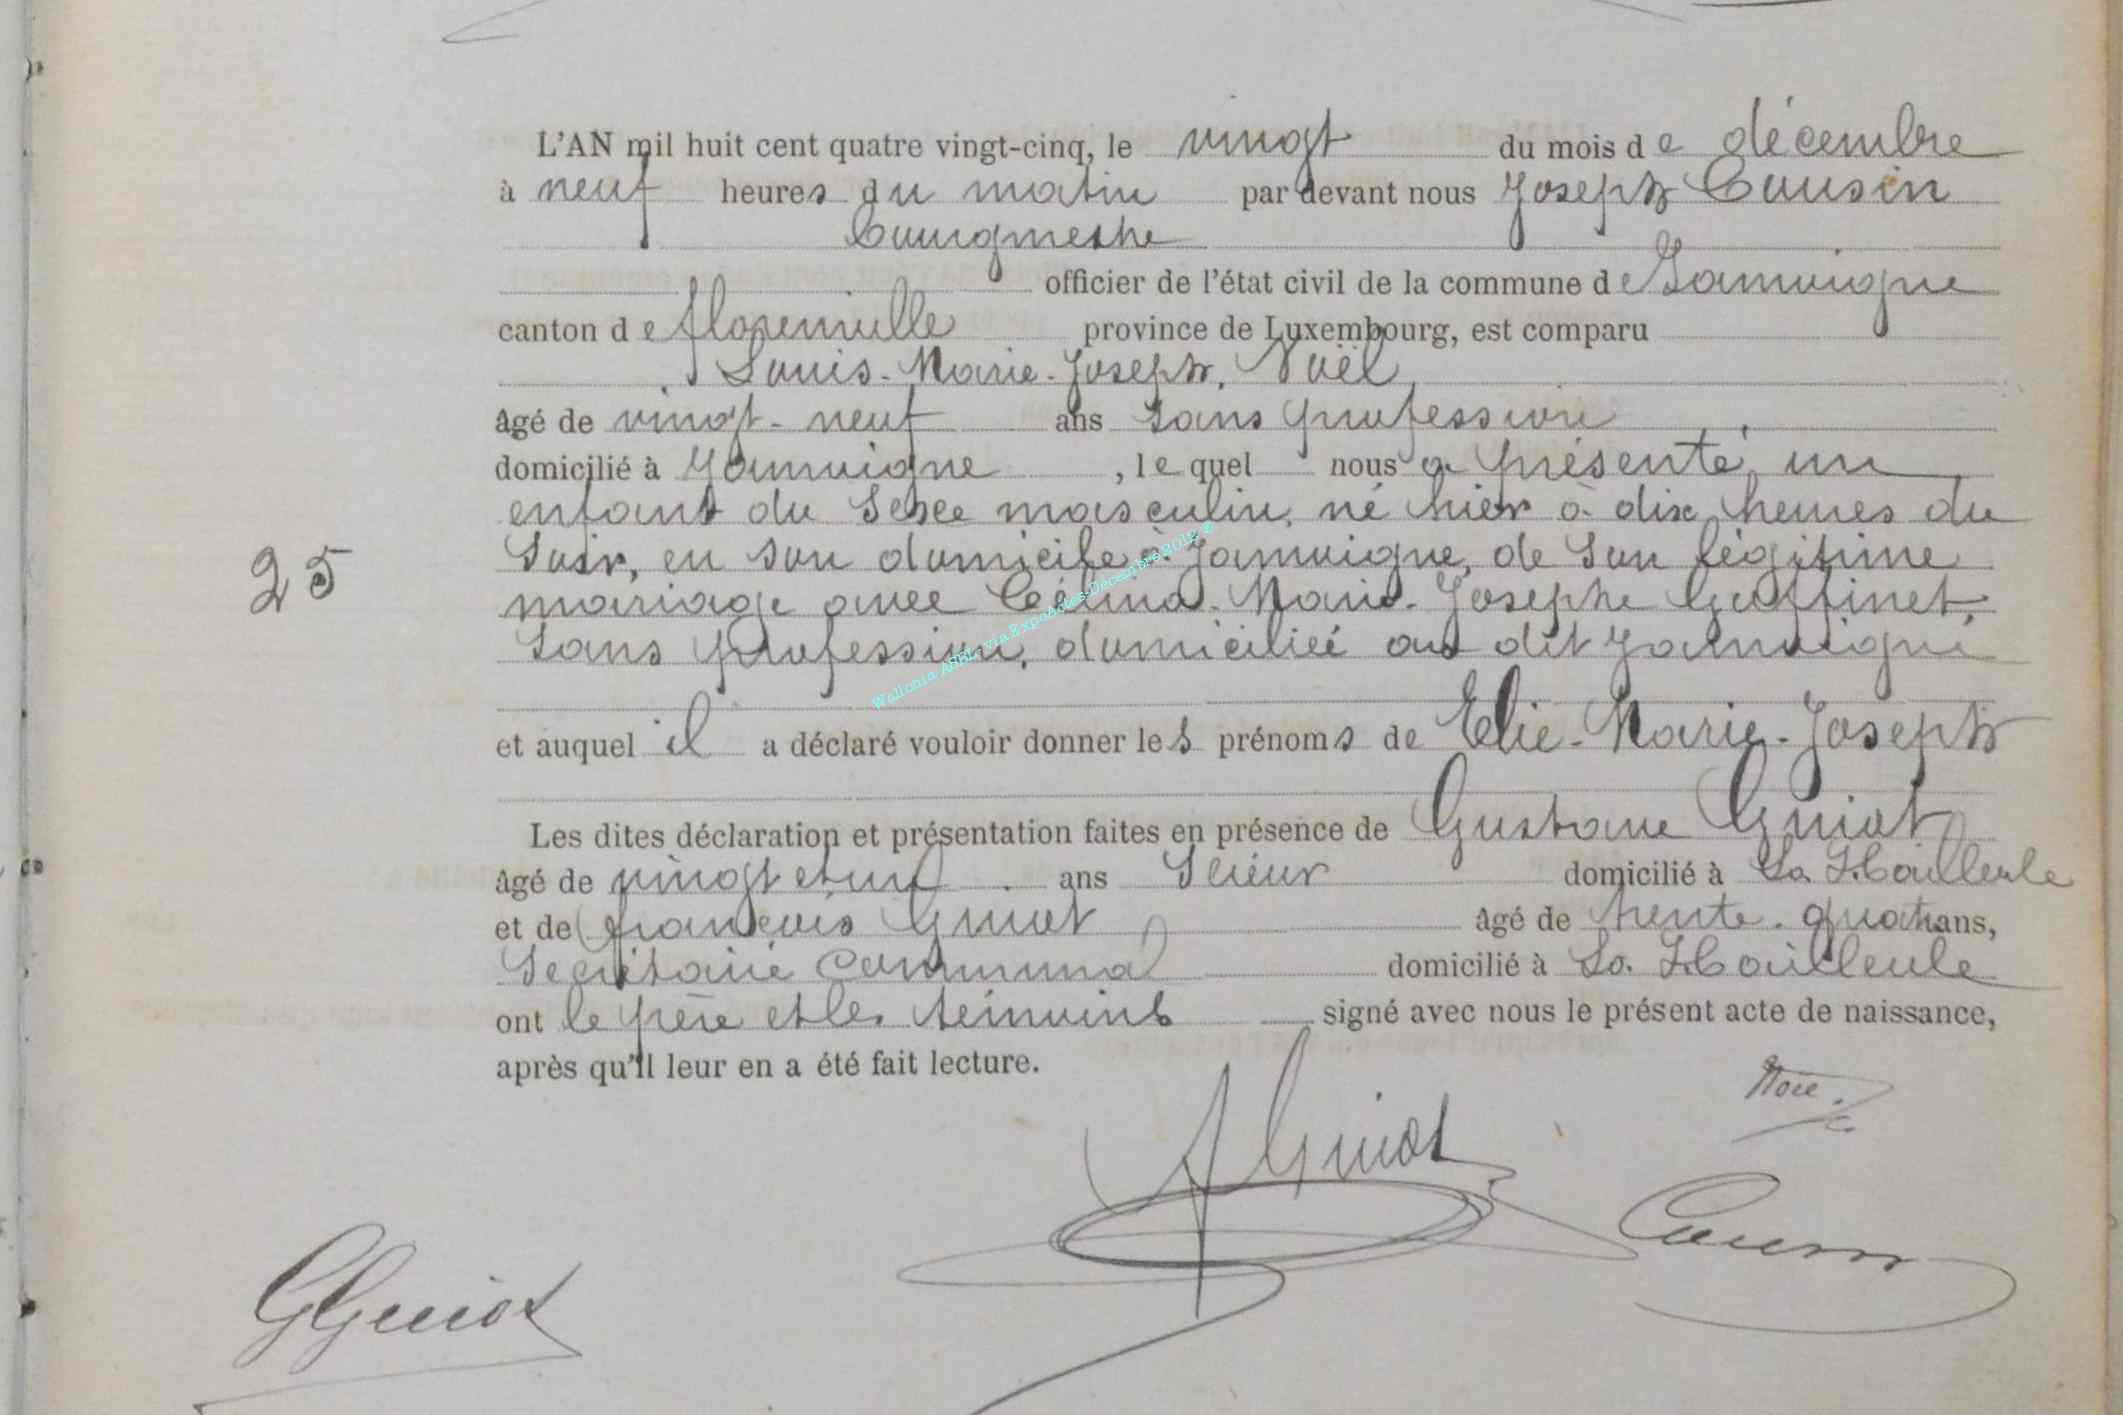 L'AN mil huit cent quatre vingt-cinq, le vingt du mois de décembre
à neuf heures du matin par devant nous Joseph Cousin
Bourgmestre
officier de l'état civil de la commune de Jamoigne
canton de florenville province de Luxembourg, est comparu
Louis-Marie-Joseph, Noël
âgé de vingt-neuf ans sans profession,
domicilié à Jamoigne, lequel nous a présenté un
enfant du sexe masculin, né hier à dix heures du
soir, en son domicile à Jamoigne, de son légitime
25
mariage avec Célina-Marie-Josephe Goffinet,
sans profession, domiciliée au dit Jamoigne
et auquel il a déclaré vouloir donner les prénoms de Elie-Marie-Joseph
Les dites déclaration et présentation faites en présence de Gustave Guiot
âgé de vingt et un ans Scieur domicilié à La Hailleule
et de françois Guiot âgé de trente-quatre ans,
Secrétaire Communal domicilié à La Hailleule
ont le père et les témoins signé avec nous le présent acte de naissance,
après qu'il leur en a été fait lecture.
Guiot
Cousin
GGuiot
Wallonia ASBL, via ExpoActes-Decembre 2019